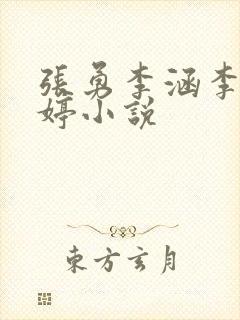 張勇李涵李
婷小說
東方玄月